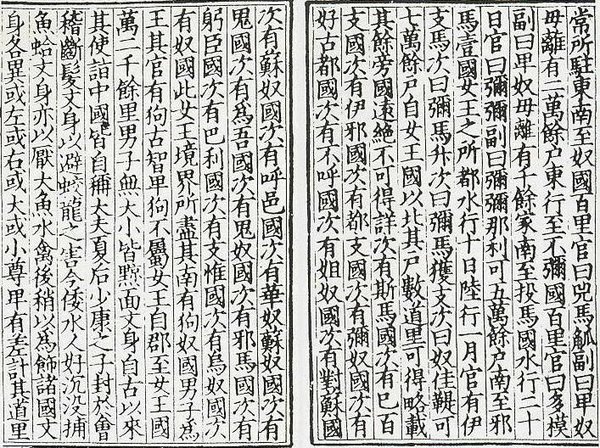 常所駐東南至奴國百里官曰兕馬觚副曰卑奴
毋離有二萬餘户東行至不彌國百里官曰多模
副曰卑奴毋離有千餘家南至投馬國水行二十
日官曰彌彌副曰彌彌那利可五萬餘户南至邪
馬壹國女王之所都水行十日陸行一月官有伊
支馬次曰彌馬升次曰彌馬獲支次曰奴佳鞮可
七萬餘户自女王國以北其户數道里可得略載
其餘旁國遠絶不可得詳次有斯馬國次有已百
支國次有伊邪國次有都支國次有彌奴國次有
好古都國次有不呼國次有姐奴國次有對蘇國
次有蘇奴國次有呼邑國次有華奴蘇奴國次有
鬼國次有爲吾國次有鬼奴國次有邪馬國次有
躬臣國次有巴利國次有支惟國次有烏奴國次
有奴國此女王境界所盡其南有狗奴國男子爲
王其官有狗古智卑狗不屬女王自郡至女王國
萬二千餘里男子無大小皆黥面文身自古以來
其使詣中國皆自稱大夫夏后少康之子封於會
稽斷髮文身以避蛟龍之害今倭水人好沉没捕
魚蛤文身亦以厭大魚水禽後稍以爲飾諸國文
身各異或左或右或大或小尊卑有差計其道里